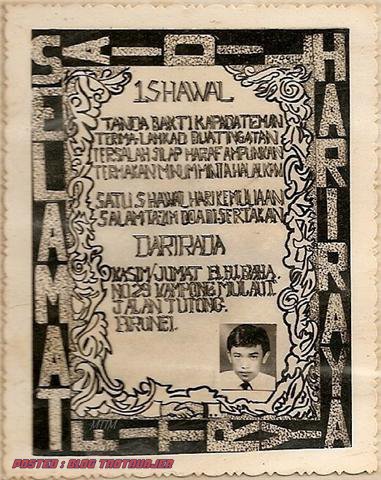 SELAMAT
AIDIL
HARI RAYA
1 SHAWAL
TANDA BAKTI KAPADA TEMAN
TERIMA-LAH KAD BUAT INGATAN
TERSALAH SILAP HARAF AMPUNKAN
TERMAKAN MINUM MINTA HALALKAN
SATU SHAWAL HARI KEMULIAAN
SALAM TAKZIM DOA DI SERTAKAN
DARIPADA
KASIM/JUMAT
NO. 29 KAMPONG MULAUT.
JALAN TUTONG.
BRUNEI.
POSTED : BLOG